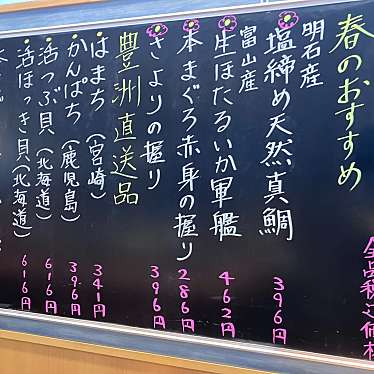 春のおすすめ
全品税込価格
明石産
塩締め天然真鯛
396円
富山産
生ほたるいか軍艦
462円
本まぐろ赤身の握り
286円
さよりの握り
396円
豊洲直送品
はまち(宮崎)
341円
かんぱち(鹿児島)
396円
活つぶ貝(北海道)
616円
活ほっき貝(北海道)
616円